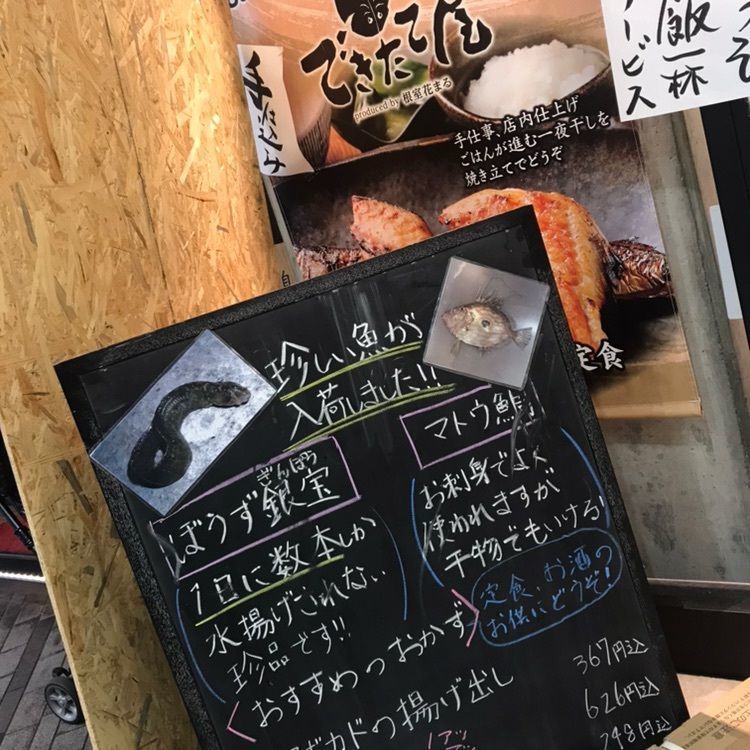 できたて屋
produced by 根室花まる
手仕込み
手仕事、店内仕上げ
ごはんが進む一夜干しを
焼き立てでどうぞ
飯一杯
ービス
定食
珍しい魚が
入荷しました!!
ぎんぽう
ぼうず銀宝
1日に数本しか
水揚げされない
珍品です!!
マトウ鯛
お刺身でよく
使われますが
干物でもいける
定食、お酒の
お供にどうぞ!
<おすすめっおかず>
ボカドの揚げ出し
367円込
626円込
748円込